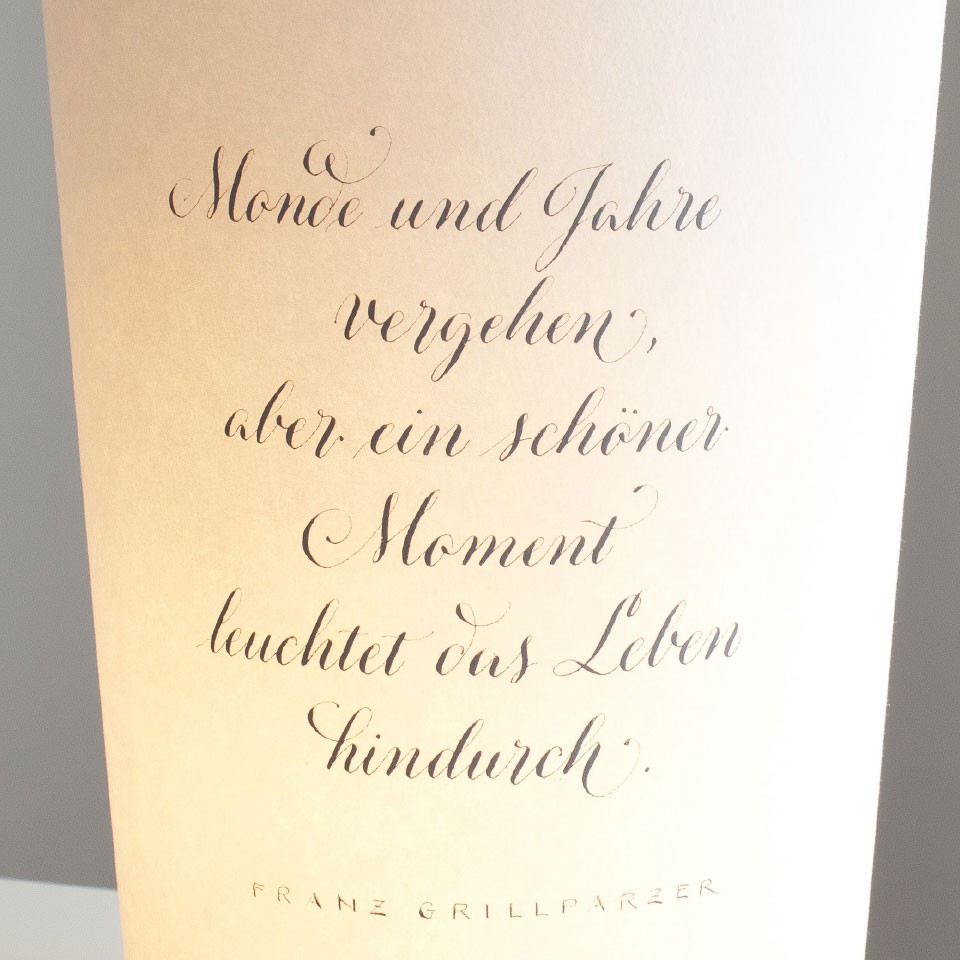 Monde und Jahre
vergehen,
aber ein schöner
Moment
leuchtet das Leben
hindurch.
FRANZ GRILLPARZER